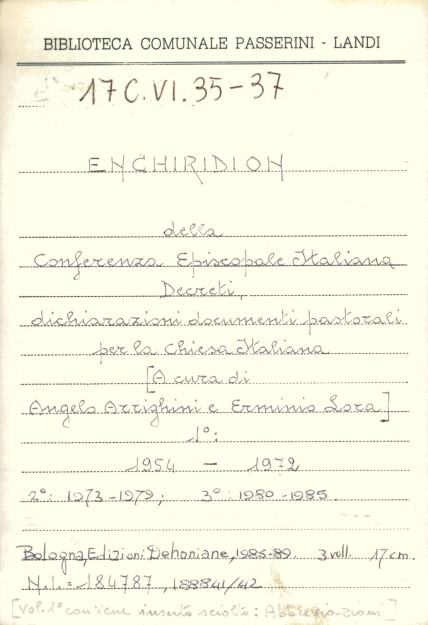 BIBLIOTECA COMUNALE PASSERINI - LANDI
17C.VI.35-37
ENCHIRIDION
della
Conferenza Episcopale Italiana
Decreti,
dichiarazioni documenti pastorali
per la Chiesa Italiana
[A cura di
Angelo Arrighini e Erminio Lora]
1º:
1954 - 1972
2º: 1973-1979; 3º: 1980-1985.
Bologna, Edizioni Dehoniane, 1985-89. 3 voll. 17 cm.
N.I.= 184787, 188841/42
[Vol. 1º contiene inserto sciolto: Abbreviazioni]